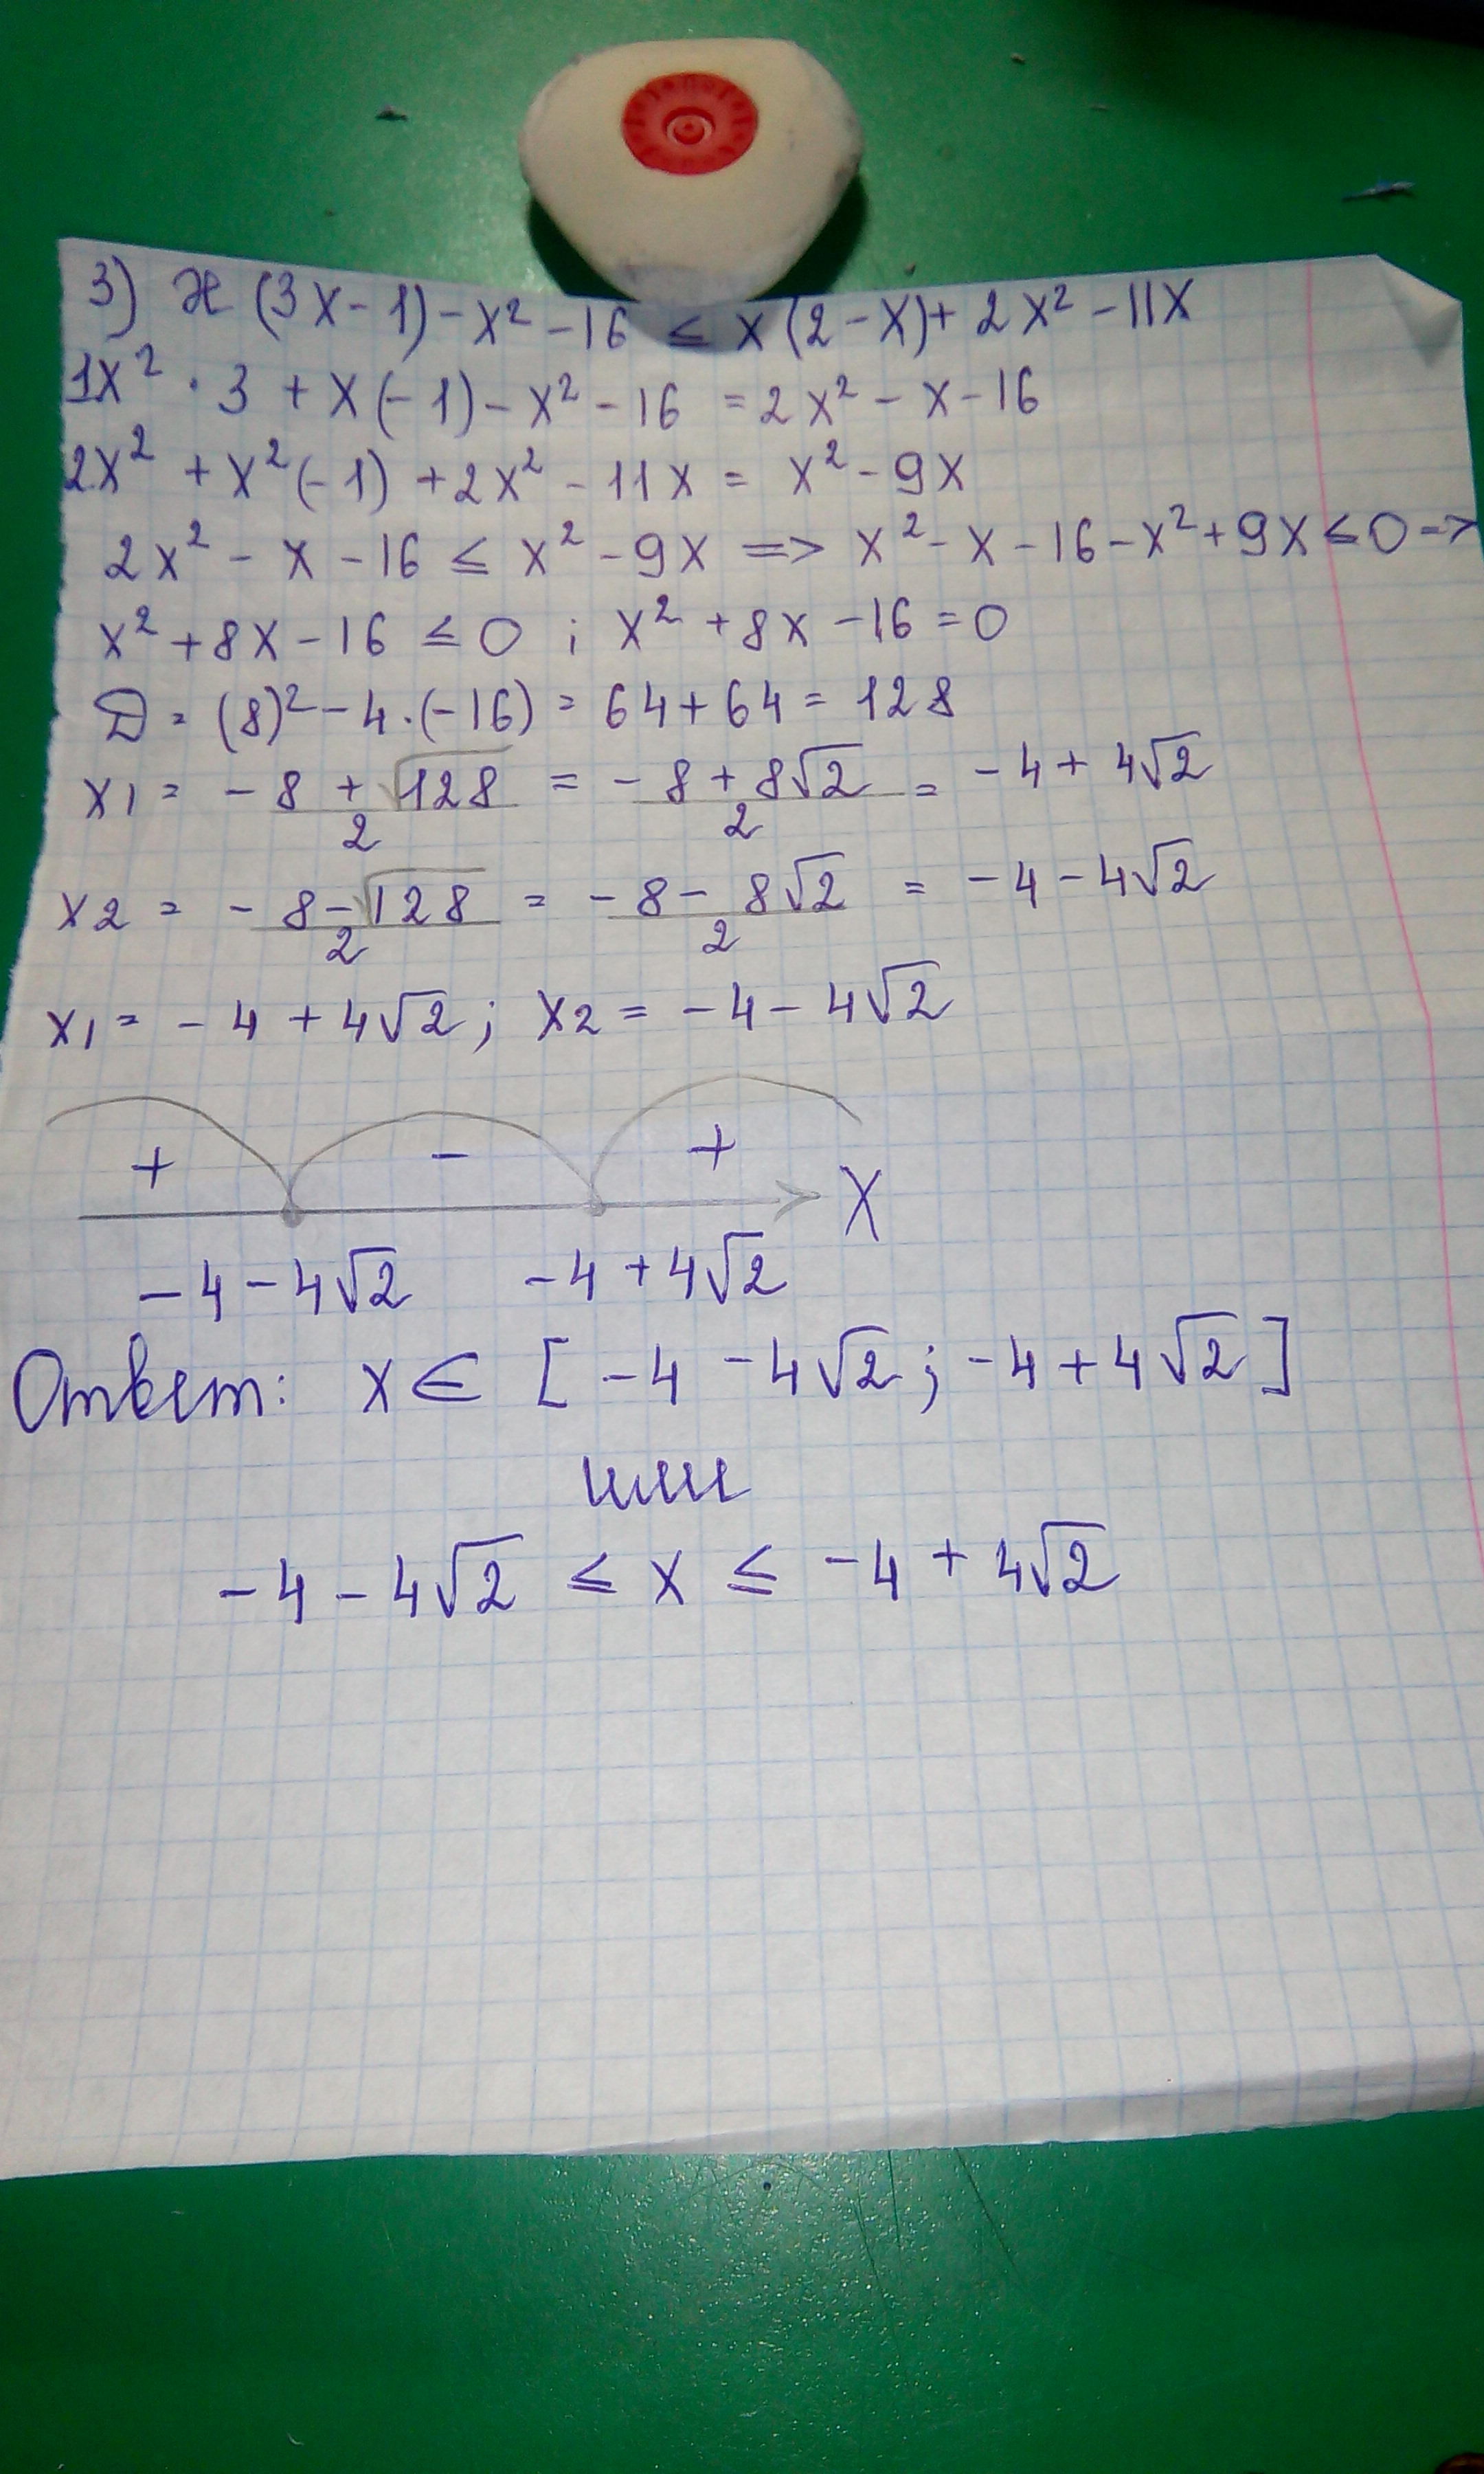 3) x (3x-1)-x²-16 ≤ x(2-x)+2x²-11x
1x²·3+x(-1)-x²-16 = 2x²-x-16
2x²+x²(-1)+2x²-11x = x²-9x
2x²-x-16 ≤ x²-9x => x²-x-16-x²+9x ≤ 0 =>
x²+8x-16 ≤ 0 ; x²+8x-16=0
D = (8)²-4·(-16) = 64+64 = 128
x1 = -8+√128/2 = -8+8√2/2 = -4+4√2
x2 = -8-√128/2 = -8-8√2/2 = -4-4√2
x1 = -4+4√2; x2 = -4-4√2
+ - + X
-4-4√2 -4+4√2
Ответ: x∈ [-4-4√2; -4+4√2]
или
-4-4√2 ≤ x ≤ -4+4√2